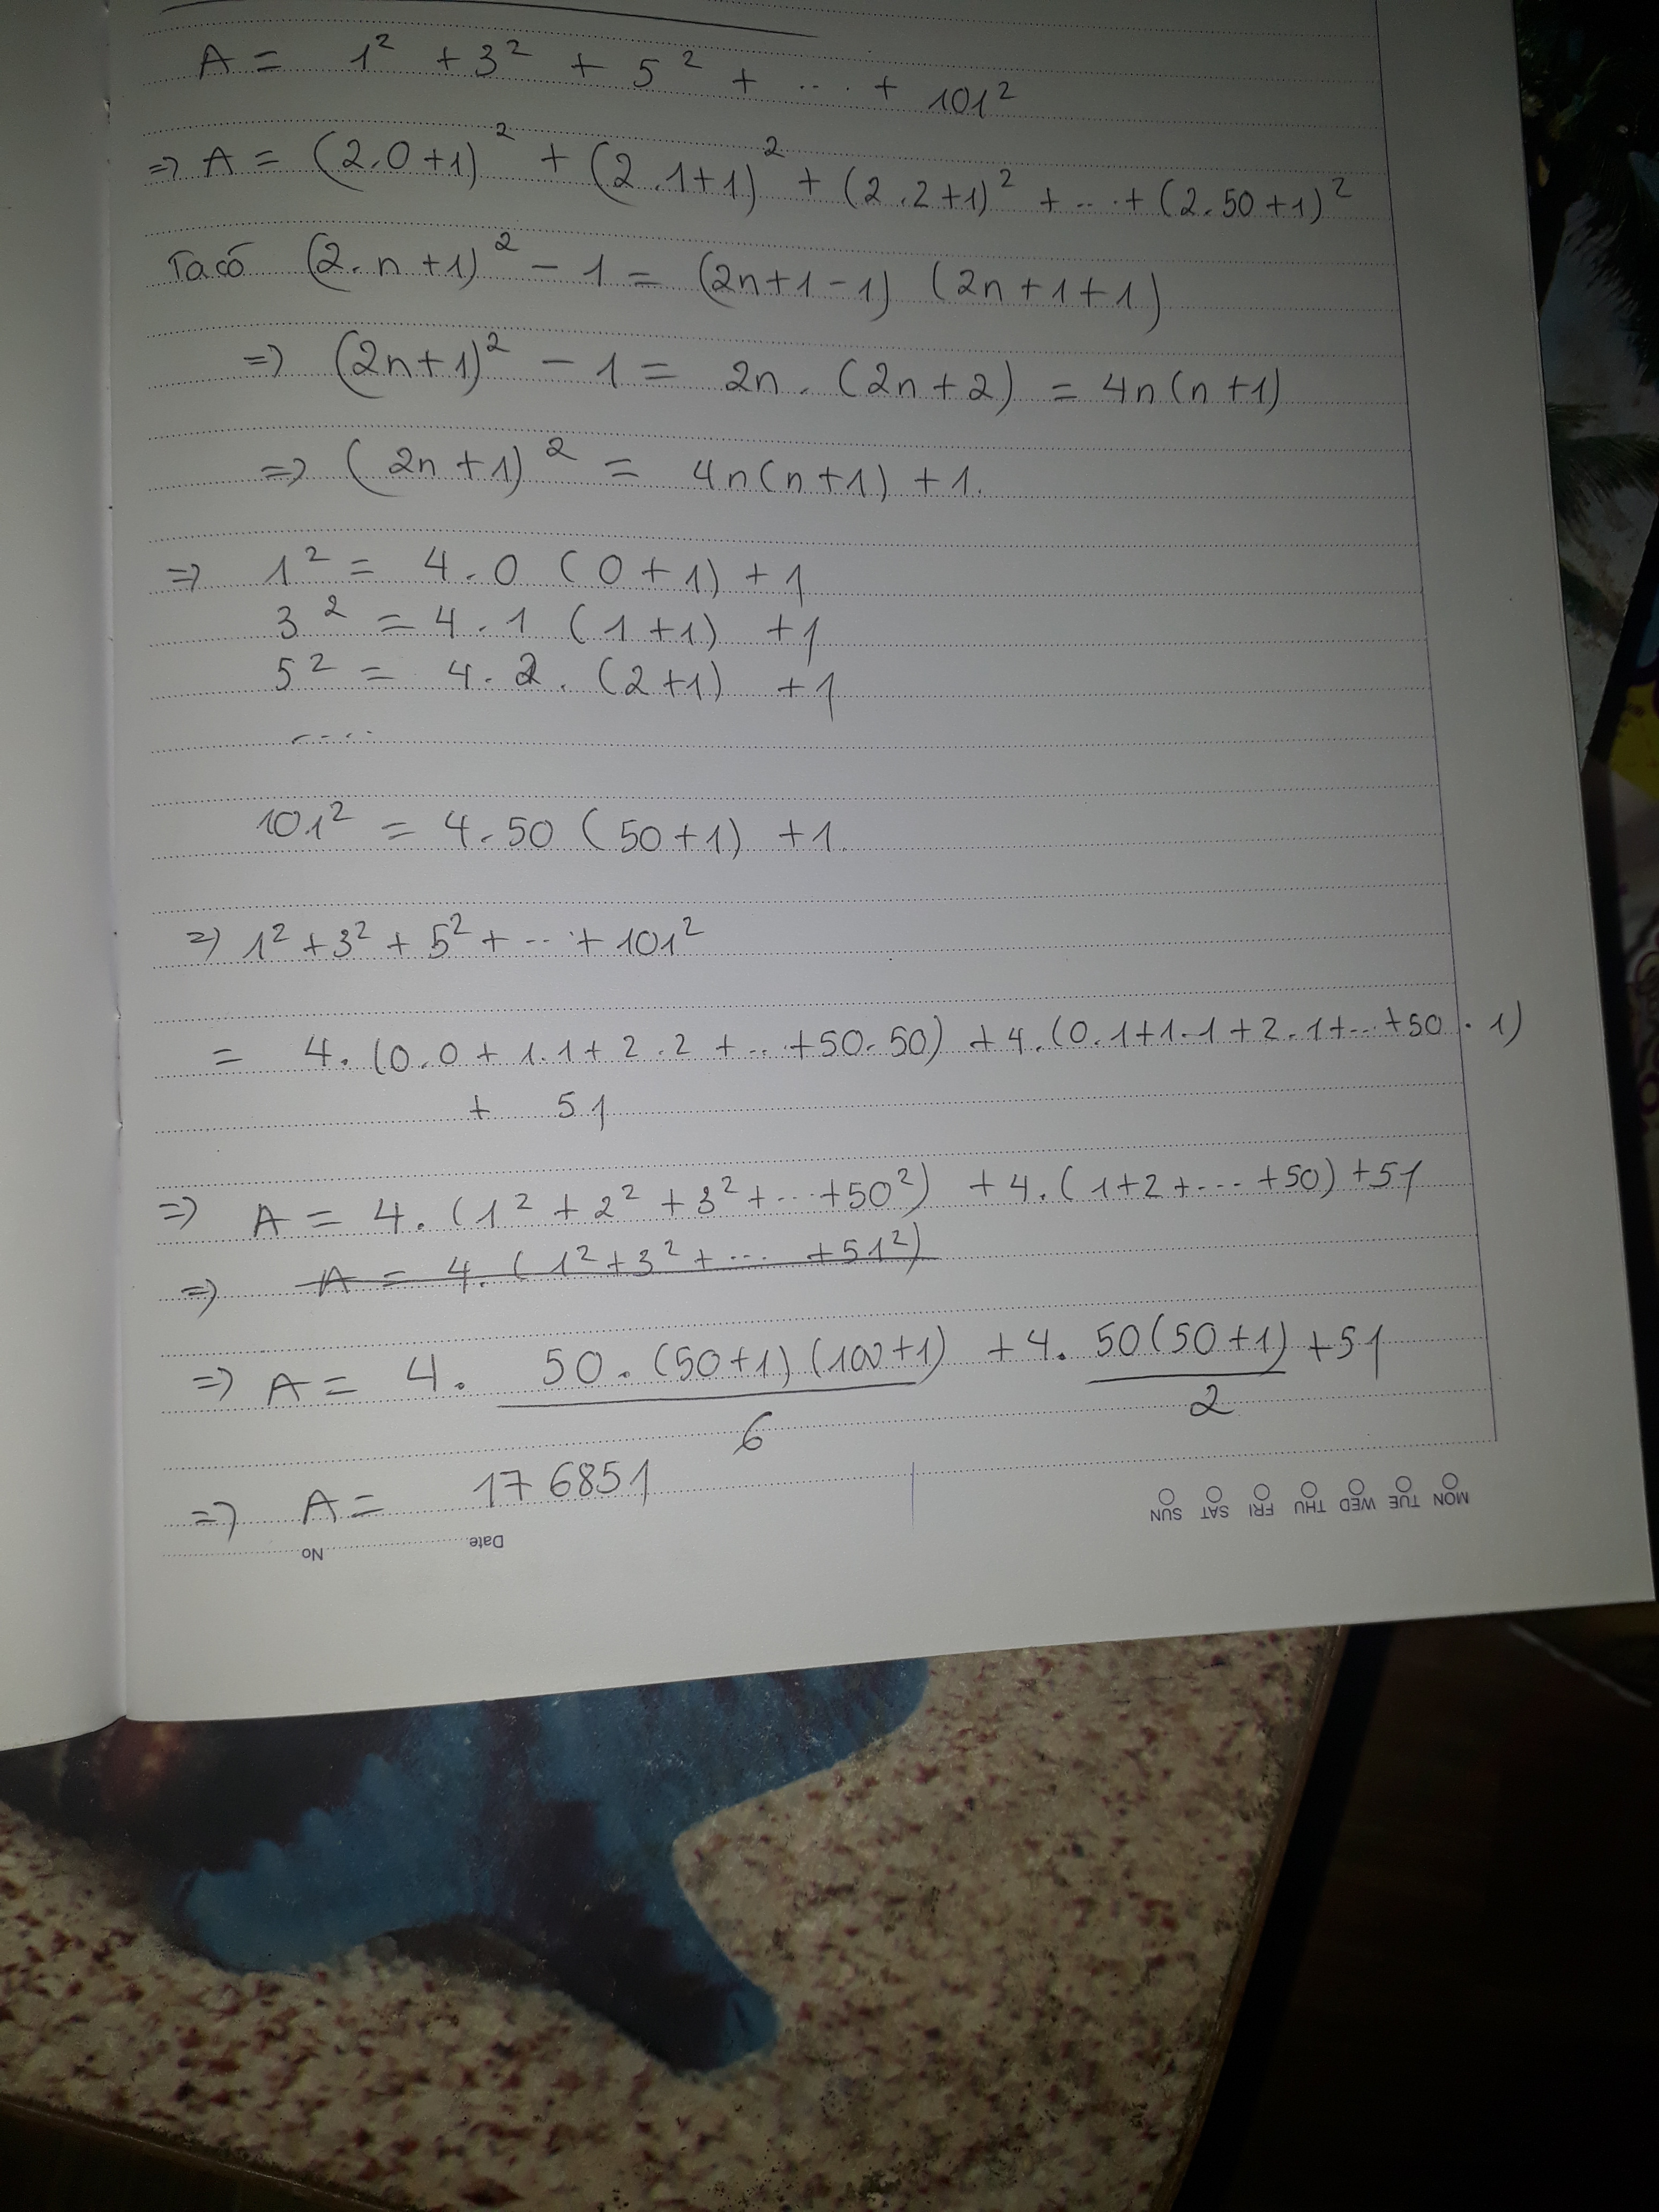 A = 1² + 3² + 5² + ... + 101²
=> A = (2.0+1)² + (2.1+1)² + (2.2+1)² + ... + (2.50+1)²
Ta có (2.n+1)² - 1 = (2n+1-1) (2n+1+1)
=> (2n+1)² - 1 = 2n. (2n+2) = 4n(n+1)
=> (2n+1)² = 4n(n+1) +1.
=> 1² = 4.0 (0+1) +1
3² = 4.1 (1+1) +1
5² = 4.2. (2+1) +1
....
101² = 4.50 (50+1) +1.
=> 1² + 3² + 5² + ... + 101²
= 4.(0.0 + 1.1 + 2.2 + ... +50.50) + 4.(0.1+1.1+2.1+...+50.1)
+ 51
=> A = 4.(1² + 2² + 3² + ... +50²) + 4.(1+2+...+50) +51
=> A = 4.(1²+3²+... +51²)
=> A = 4. 50.(50+1)(100+1)/6 + 4. 50(50+1)/2 +51
=> A = 176851
Date
No
MON TUE WED THU FRI SAT SUN